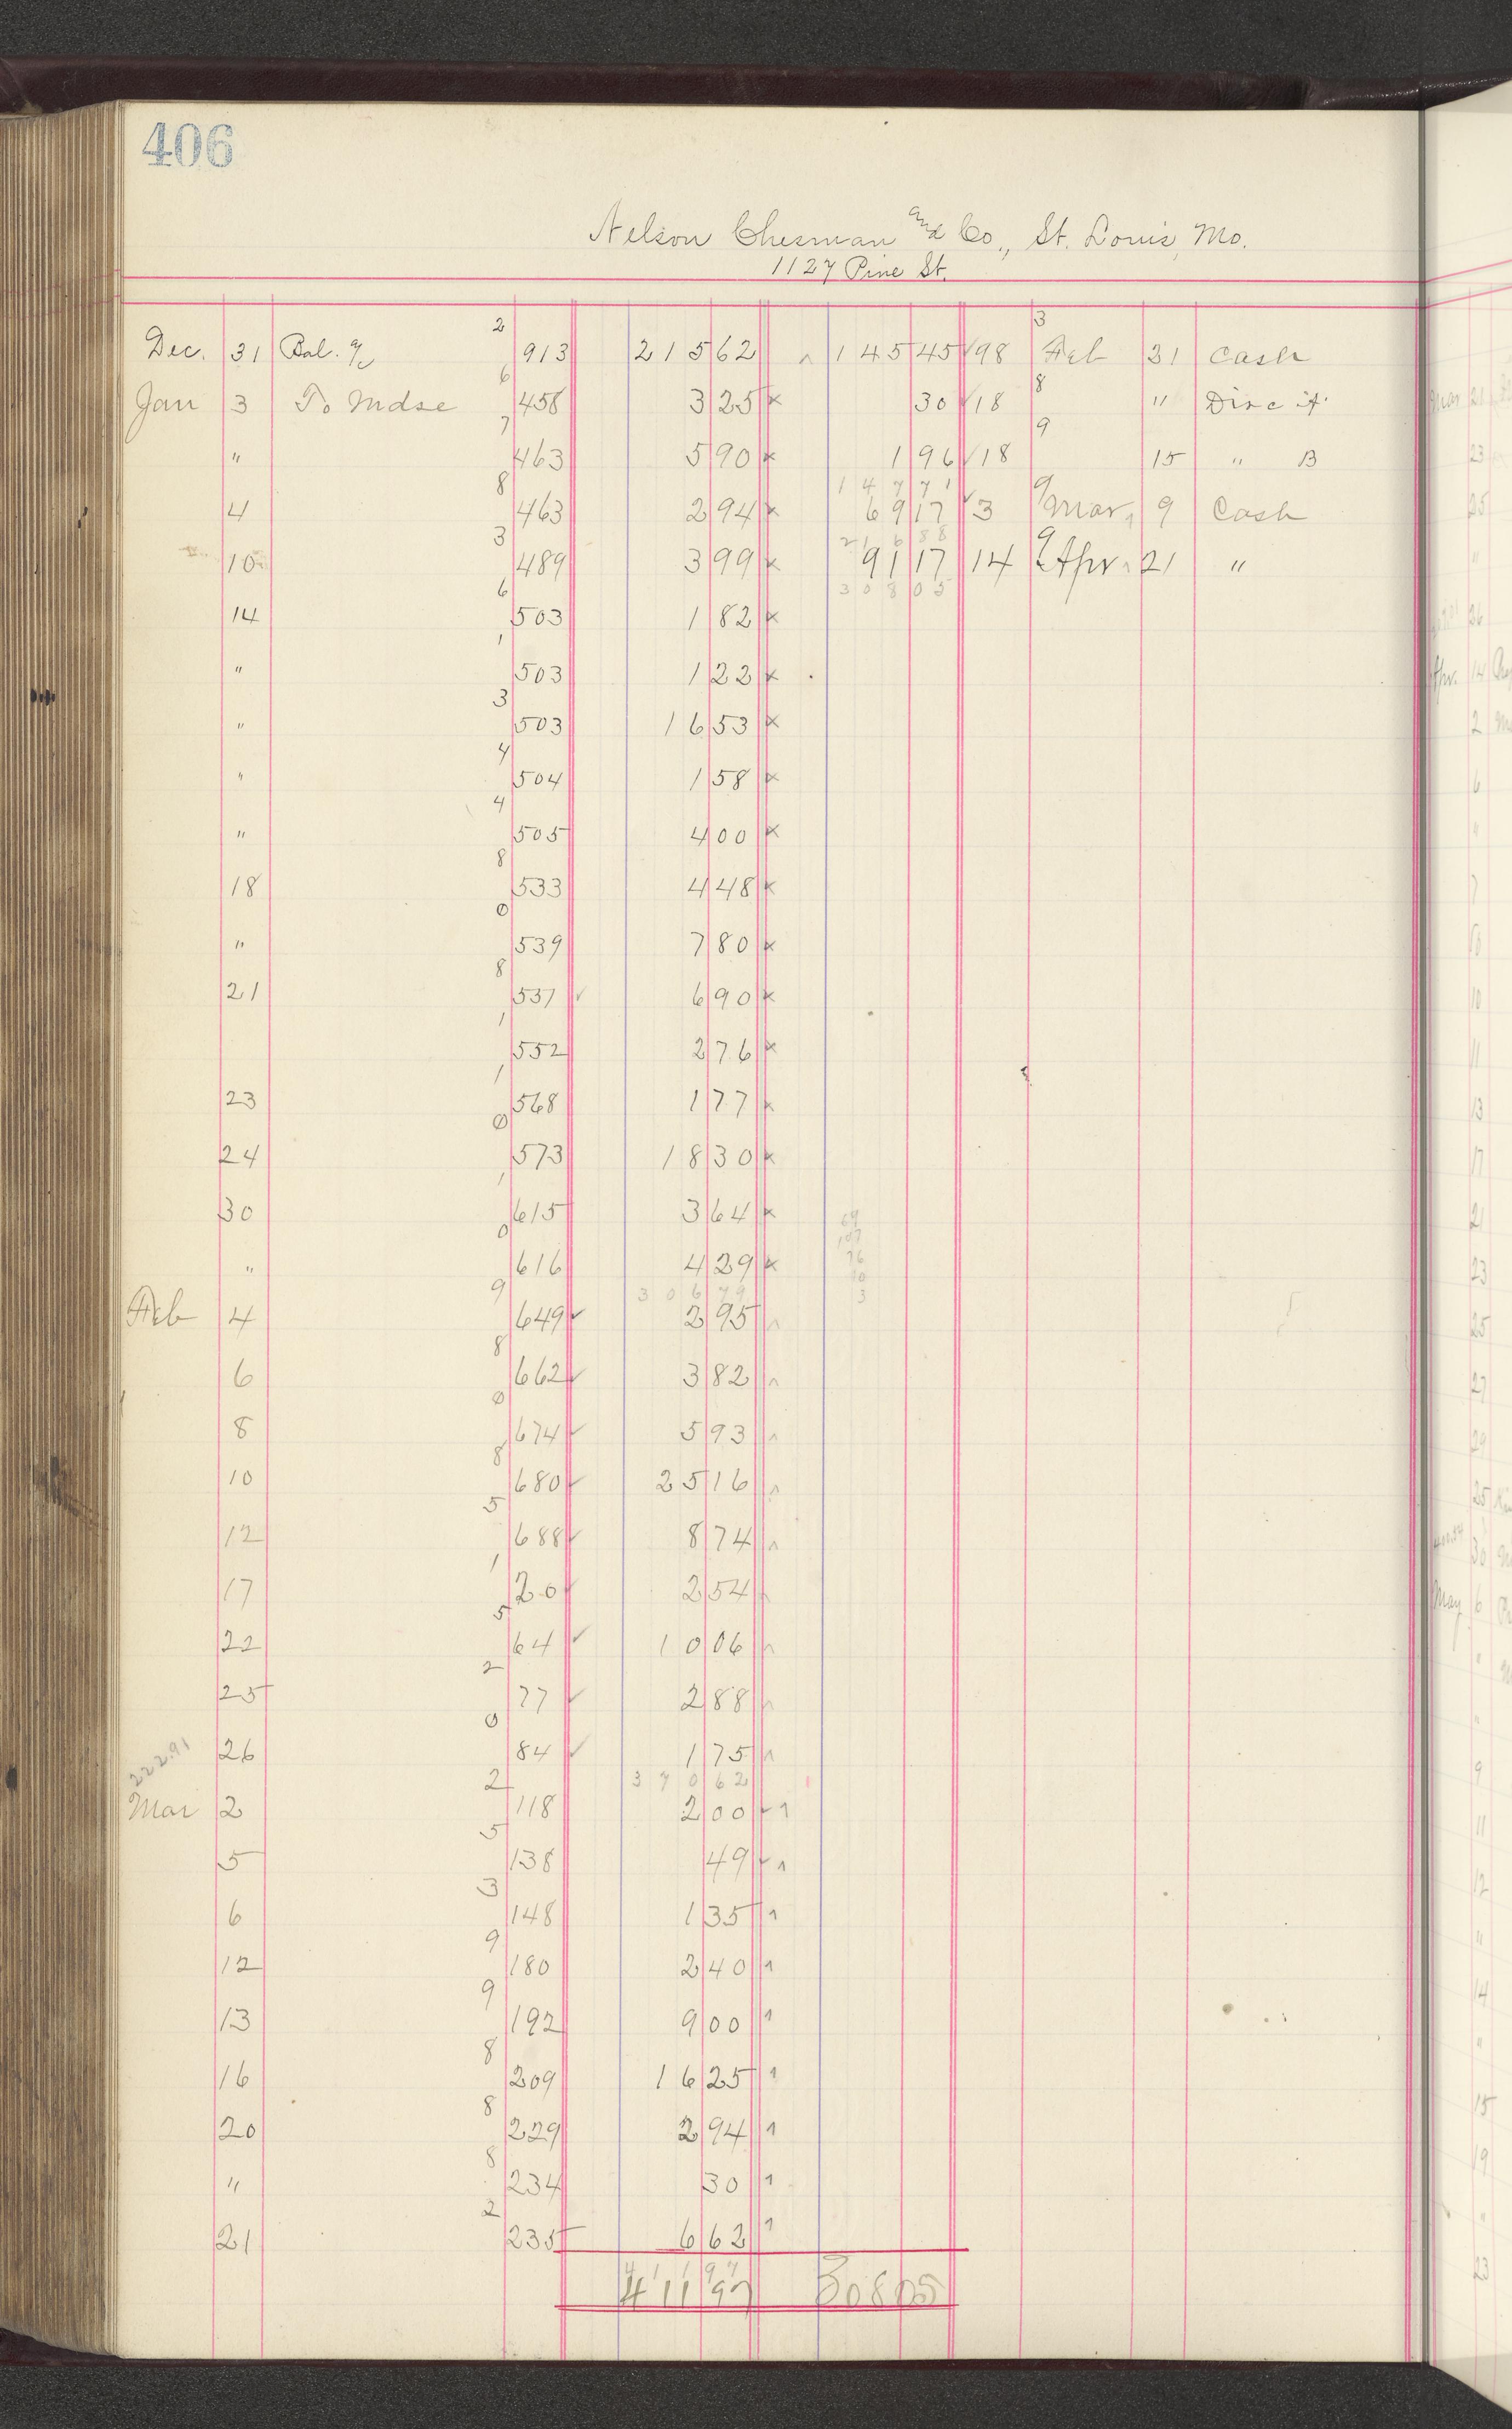 406
Nelson Chesman and Co., St. Louis, Mo.
1127 Pine St.
Dec. 31 Bal. 2 913 215 62 145 45 98 3 Feb 21 Cash
Jan 3 To Mdse 6 458 3 25 x 30 18 8 " Disc "A"
" 7 463 5 90 x 1 96 18 9 15 " B
147 71
4 8 463 2 94 x 69 17 3 9 Mar, 9 Cash
216 88
10 3 489 3 99 x 91 17 14 9 Apr. 21 "
308 05
14 6 503 1 82 x
" 1 503 1 22 x
" 3 503 16 53 x
" 4 504 1 58 x
" 4 505 4 00 x
18 8 533 4 48 x
" 0 539 7 80 x
21 8 537 6 90 x
1 552 2 76 x
23 1 568 1 77 x
24 0 573 18 30 x
30 1 615 3 64 x
" 0 616 4 29 x
306 79
Feb 4 9 649 2 95
6 8 662 3 82
8 0 674 5 93
10 8 680 25 16
12 5 688 8 74
17 1 20 2 54
22 5 64 10 06
25 2 77 2 88
222.91
26 0 84 1 75
370 62
Mar 2 2 118 2 00
5 5 138 49
6 3 148 1 35
12 9 180 2 40
13 9 192 9 00
16 8 209 16 25
20 8 229 2 94
" 8 234 30
21 2 235 6 62
411 97
411 97 308 05